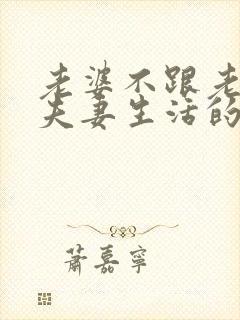 老婆不跟老
夫妻生活的
萧嘉宁